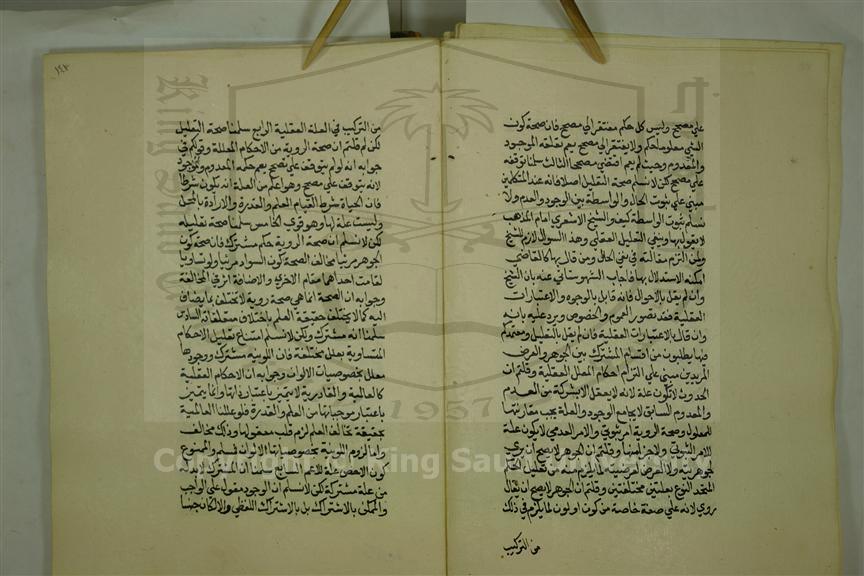 على مصحح وليس كل حكم مفتقر الى مصحح فان صحة كون
الشئ معلوما حكم ولا يفتقر الى مصحح نعم تعلقه الموجود
والمعدوم وحيث لم يعم اقتضى مصححا الثالث سلمنا توقفه
على مصحح لكن لا نسلم صحة التعليل اصلا فانه عند المتكلمين
مبني على ثبوت الحال والواسطة بين الوجود والعدم ولا
نسلم ثبوت الواسطة كيف والشيخ الاشعري امام المذهب
لا يقول بها وينفي التعليل العقلي وهذا السوال لازم للشيخ
ولمن التزم مقالته في نفي الحال ومن قال بها كالقاضي
امكنه الاستدلال بها فاجاب الشهرستاني عنه بان الشيخ
وان لم يقل بالاحوال فانه قايل بالوجوه والاعتبارات
العقلية فقد تصور العموم والخصوص ويرد عليه بانه
وان قال بالاعتبارات العقلية فان لم يقل بالتعليل ومعتمدكم
فيها يطلبون من اقسام المشترك بين الجوهر والعرض
المريدين مبني على التزام احكام العلل العقلية وقلتم ان
الحدوث لا تكون علة لانه لا يعقل الا بشركة من العدم
والمعدوم السابق لا يجامع الوجود والعلة يجب مقارنتها
للمعلول وصحة الروية امر ثبوتي والامر العدمي لا يكون علة
للامر الثبوتي ولا جزء لها وقلتم ان الجوهر لا يصح ان يرى
لجوهريته ولا العرض لعرضيته لما يلزم منه من تعليل الحكم
المتحد النوع بعلتين مختلفتين وقلتم ان الجوهر لا يصح ان يقال
روي لانه على صفة خاصة من كون او لون لما يلزم في ذلك
من التركيب
من التركيب في العلة العقلية الرابع سلمنا صحة التعليل
لكن لم قلتم ان صحة الروية من الاحكام المعللة وقولكم في
جوابه انه لو لم يتوقف على مصحح نعم حكمه المعدوم والموجود
لانه يتوقف على مصحح وهو اعم من العلة انه تكون شرطا
فان الحياة شرط القيام العلم والقدرة والارادة بالمحل
وليست علة لها وهو قوي الخامس سلمنا صحة تعليله
لكن لا نسلم ان صحة الروية حكم مشترك فان صحة كون
الجوهر مرئيا مخالف لصحة كون السواد مرئيا ولو تساويا
لقامت احداهما مقام الاخرى والاضافة اثر في المخالفة
وجوابه ان الصحة انما هي صحة روية لا تختلف بما يضاف
اليه كما لا يختلف حقيقة العلم باختلاف متعلقاته السادس
سلمنا انه مشترك ولكن لا نسلم امتناع تعليل الاحكام
المتساوية بعلل مختلفة فان اللونية مشترك ووجودها
معلل بخصوصيات الالوان وجوابه ان الاحكام العقلية
كالعالمية والقادرية لا تتميز باعتبار ذاتها وانما يتميز
باعتبار موجباتها من العلم والقدرة فلو عللنا العالمية
بحقيقة تخالف العلم لزم قلب معقولها وذلك مخالف
واما لزوم اللونية بخصوصيات الالوان فسلم والممنوع
كون الاخص علة للاعم السابع سلمنا ان المشترك لا بد له
من علة مشتركة لكن لا نسلم ان الوجود مقول على الواجب
والممكن بالاشتراك بل بالاشتراك اللفظي والا لكان جنسا
King Saud
1957